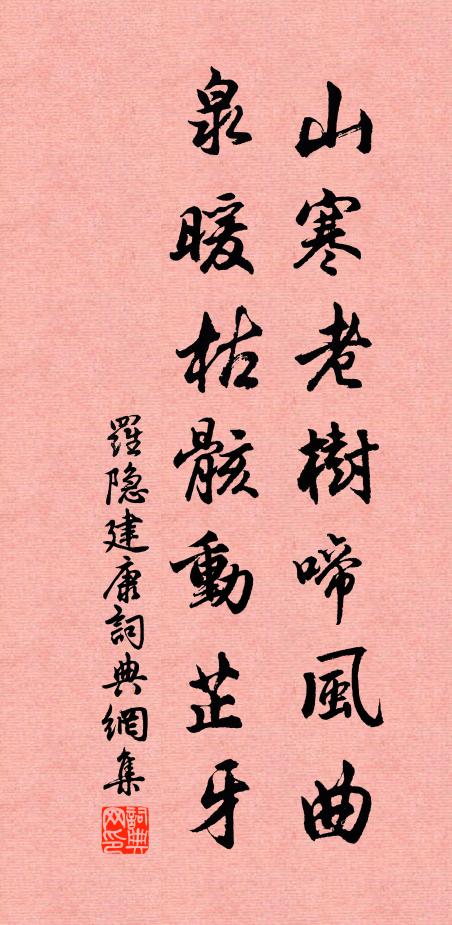 山寒老樹啼風曲
泉暖枯骸動芷牙
羅隐建康詞典網集
詞典网印